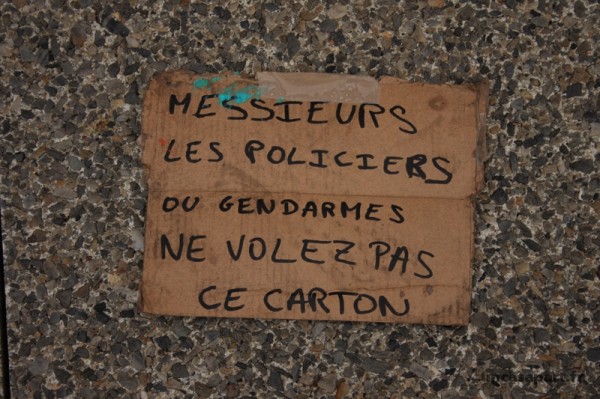 MESSIEURS
LES POLICIERS
OU GENDARMES
NE VOLEZ PAS
CE CARTON